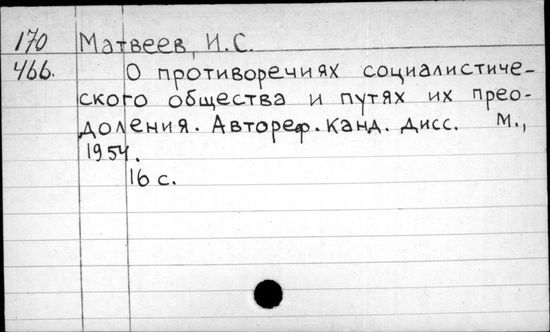 170 Матвеев, И.С.
466. О противоречиях социалистиче-
ского общества и путях их прео-
доления. Автореф. канд. дисс. М.,
1954.
16 с.